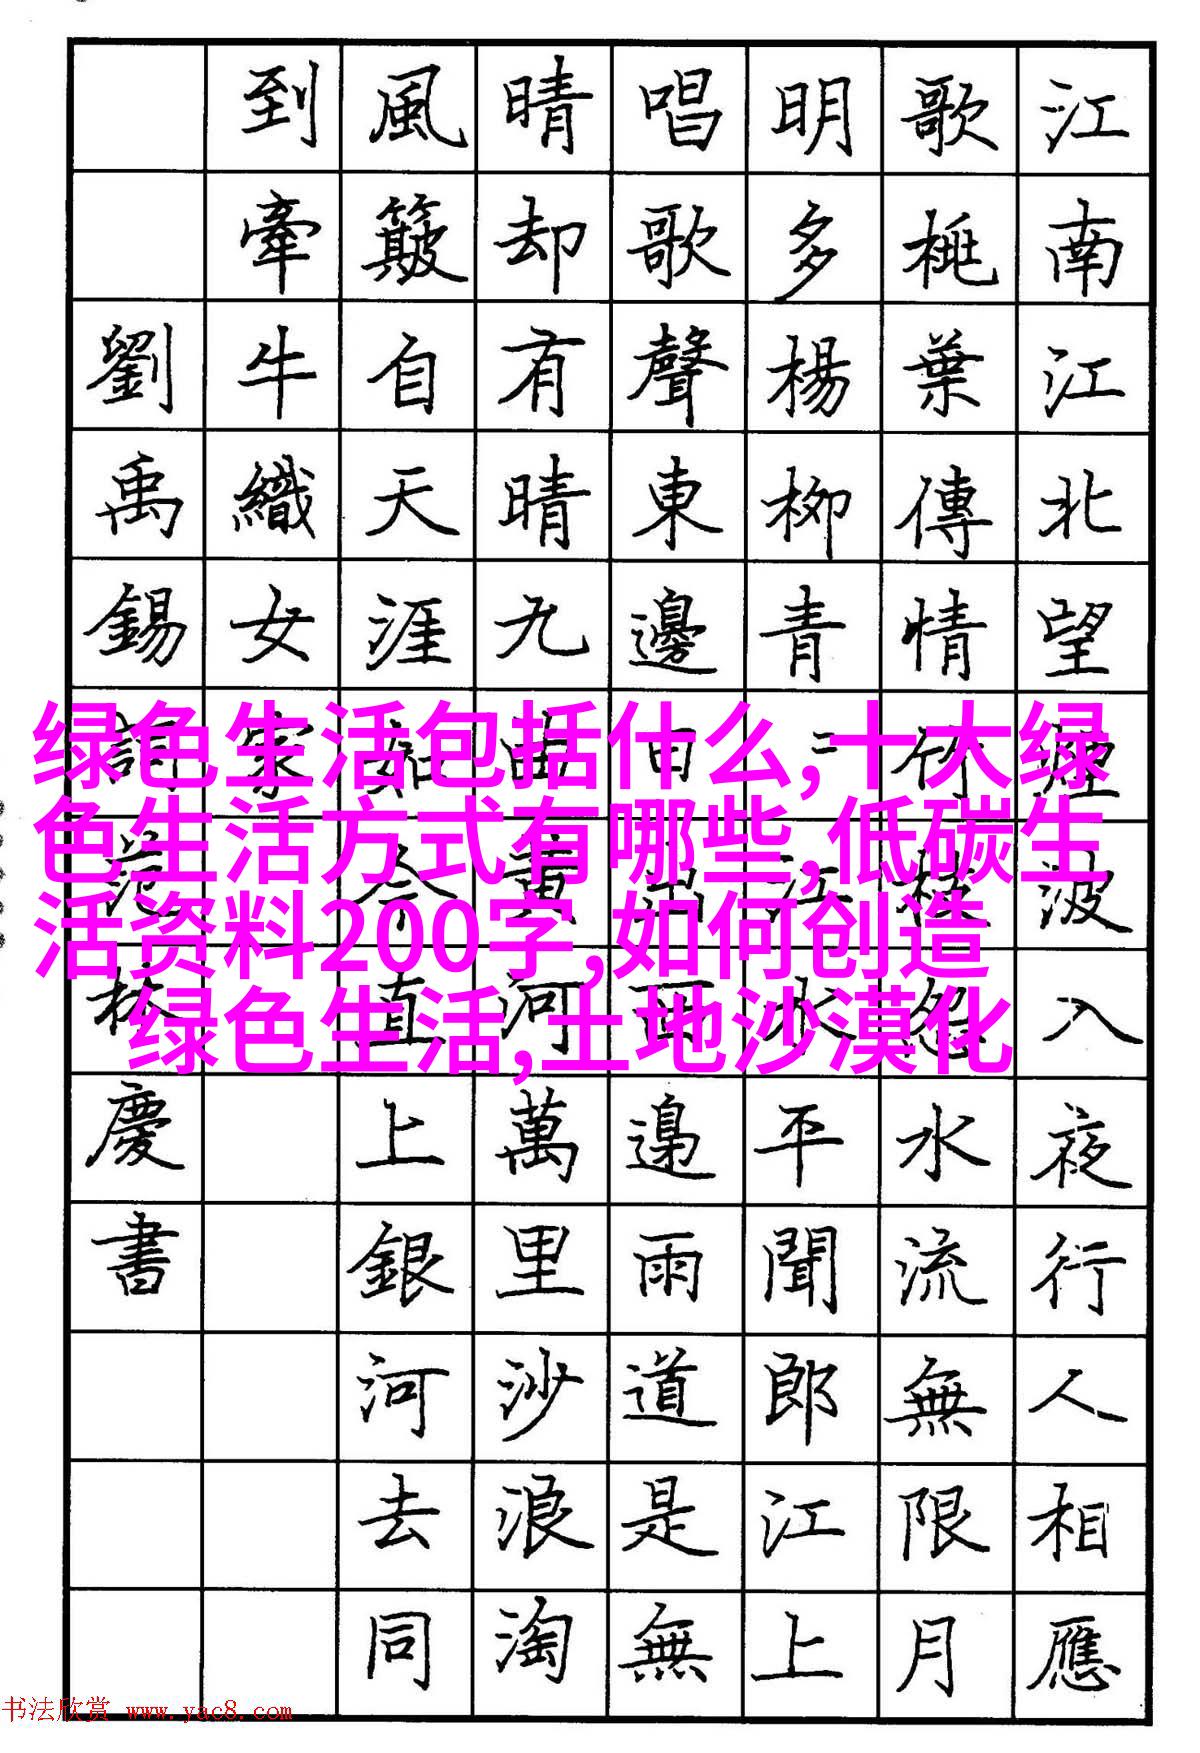 江南江北望煙波入夜行人相應
歌桃葉傳情竹枝怨水流無限月
明多楊柳青〻江水平聞郎江上
唱歌聲東邊日出西邉雨道是無
晴却有晴九曲黃河萬里沙浪淘
風簸自天涯如今直上銀河去同
到牽牛織女家
劉禹錫詞范林慶書
绿色生活包括什么,十大绿
色生活方式有哪些,低碳生
活资料200字,如何创造
绿色生活,土地沙漠化
书法欣赏 www.yac8.com